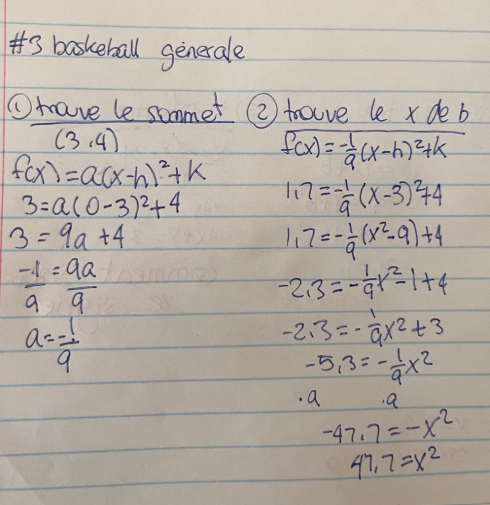 #3 baskeball génerale
① trouve le sommet
(3,4)
f(x)=a(x-h)²+k
3=a(0-3)²+4
3=9a+4
-1/9=9a/9
a=-1/9
② trouve le x de b
f(x)=-1/9(x-h)²+k
1,7=-1/9(x-3)²+4
1,7=-1/9(x²-9)+4
-2,3=-1/9x²-1+4
-2,3=-1/9x²+3
-5,3=-1/9x²
·9 ·9
-47,7=-x²
47,7=x²